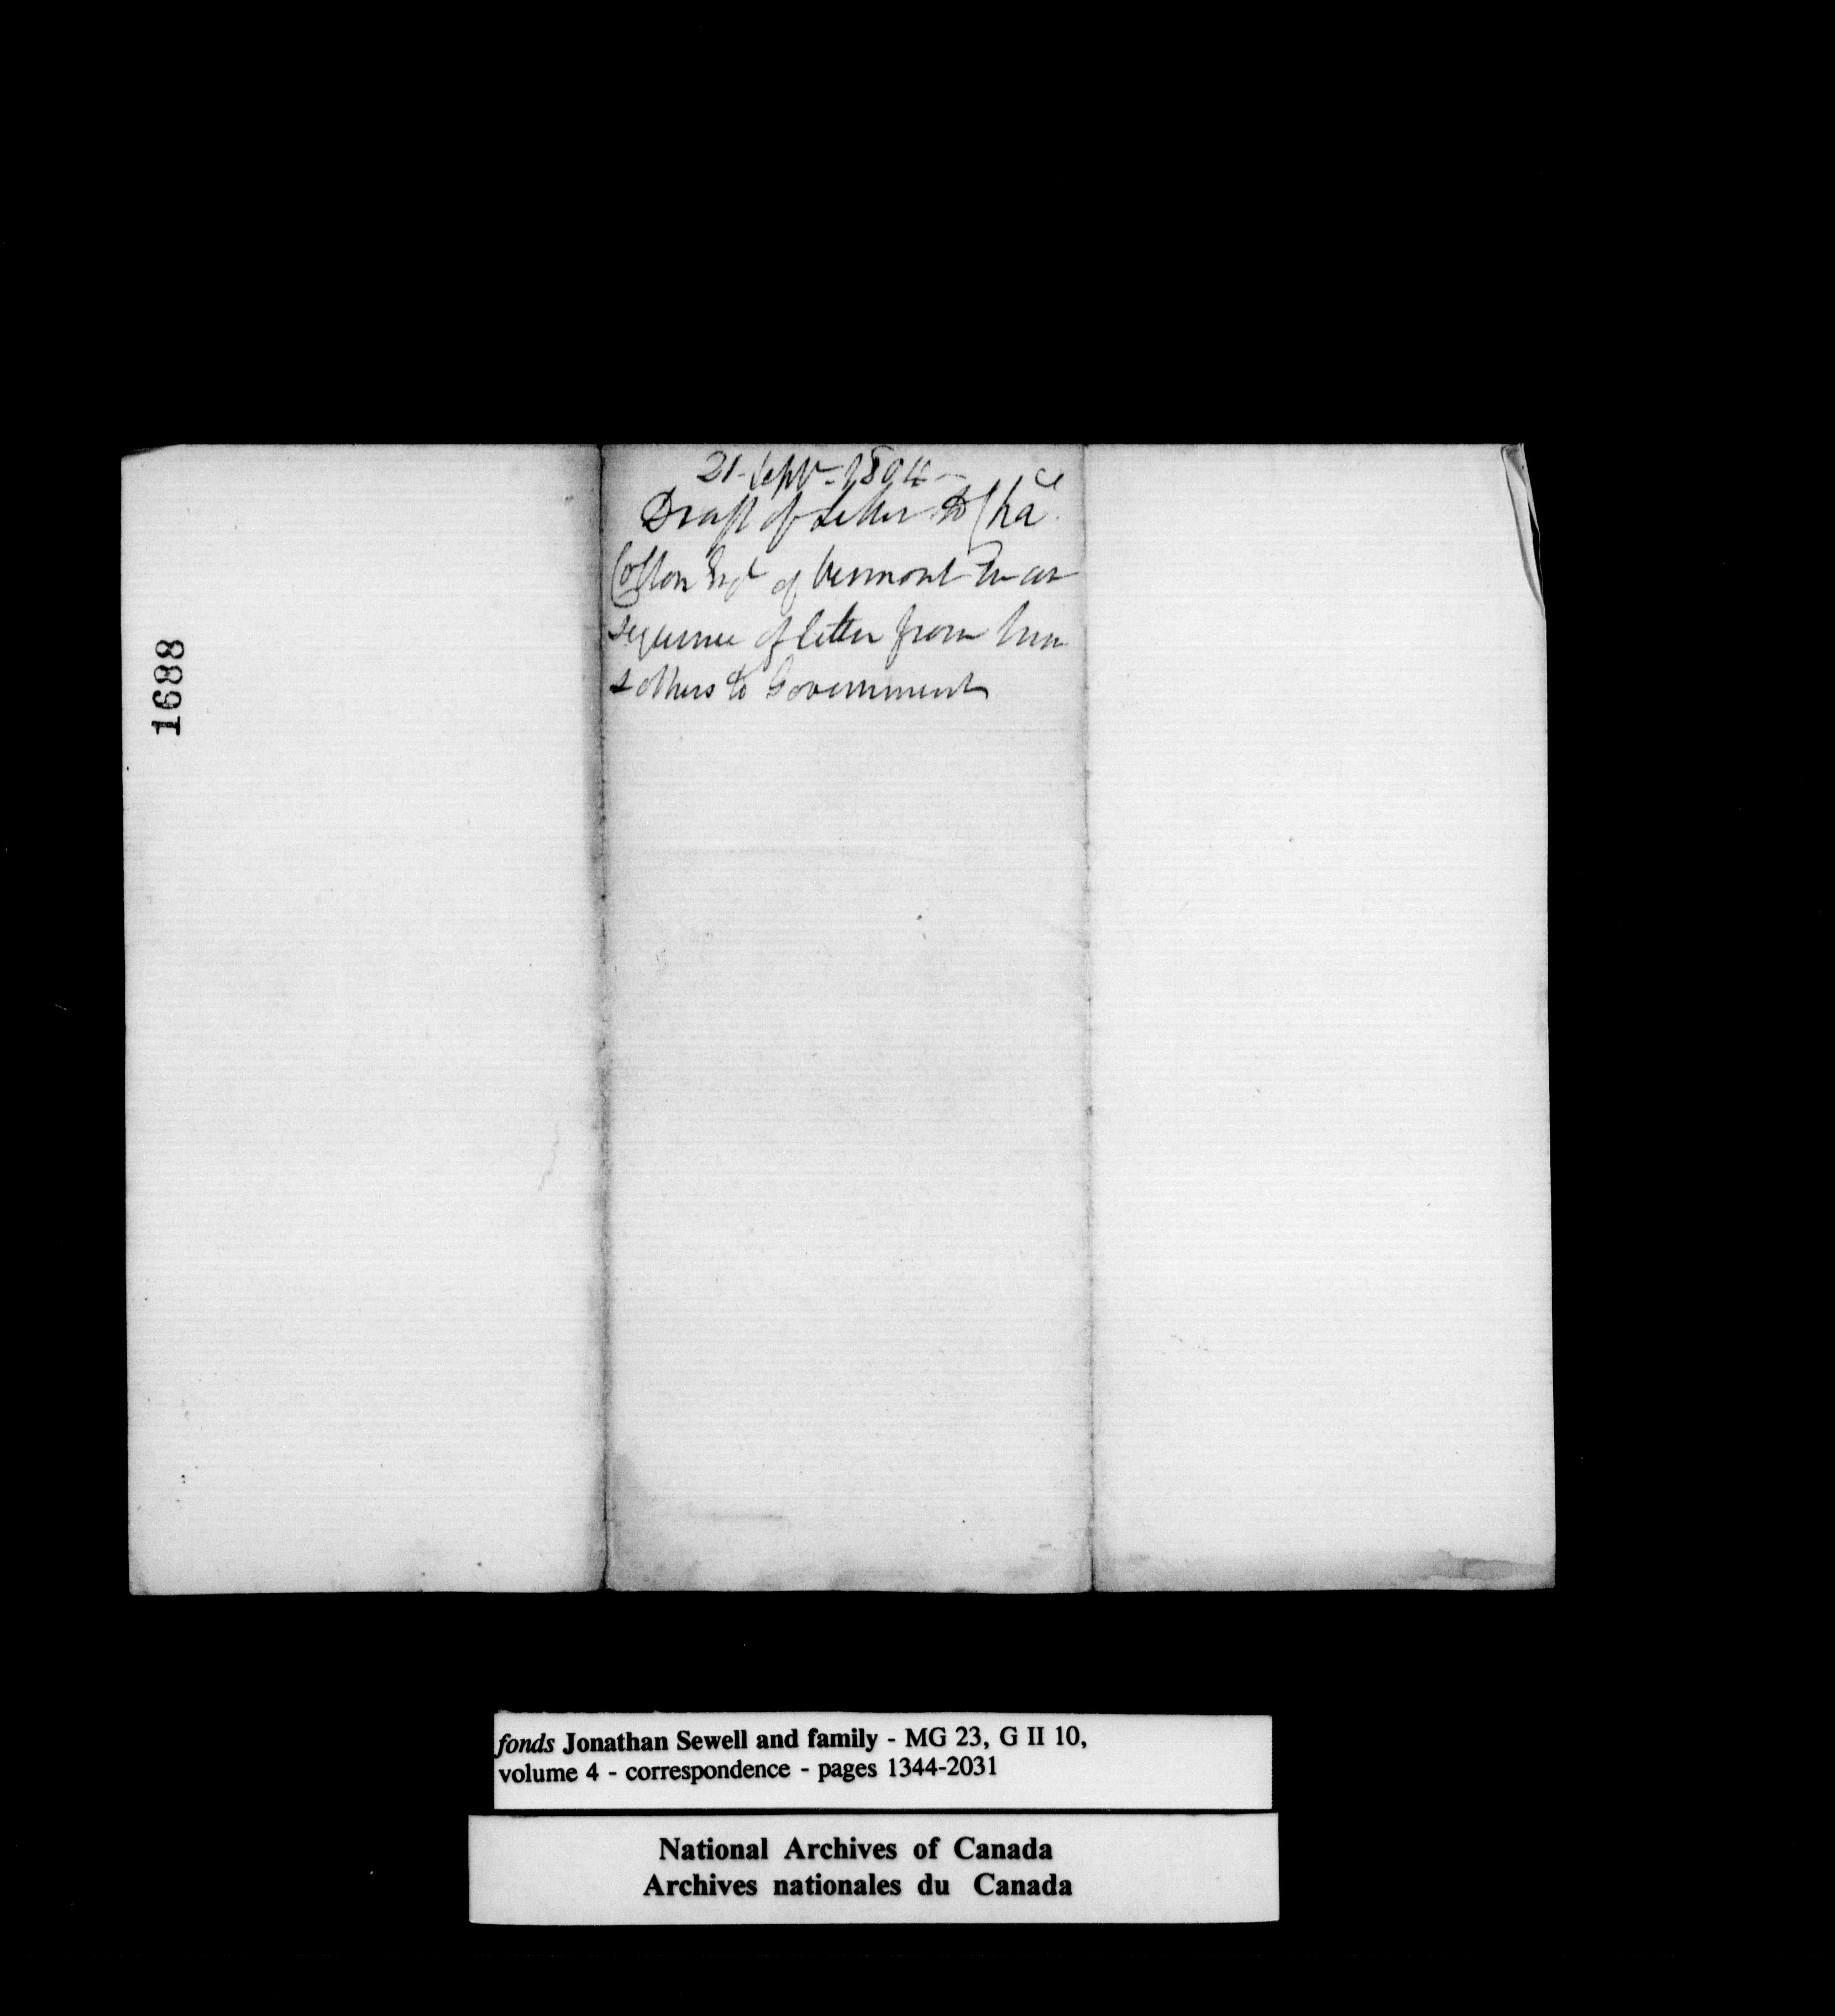 1688
21 Sept 1804
Draft of Letter to
of Vermont in con
sequence of letter from him
& others to Government
fonds Jonathan Sewell and family - MG 23, G II 10,
volume 4 - correspondence - pages 1344-2031
National Archives of Canada
Archives nationales du Canada